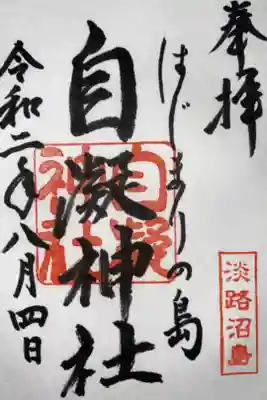 奉拝
はじまりの島
自凝神社
自凝
神社
令和二年八月四日
淡路沼島